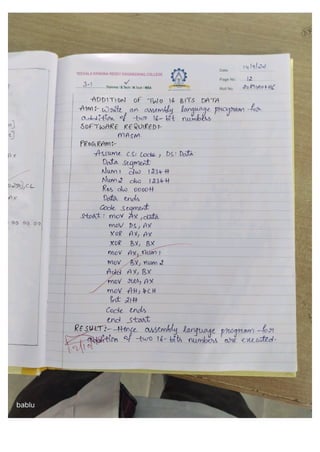 TEEGALA KRISHNA REDDY ENGINEERING COLLEGE
Date 14/9/22
Page No. 12
Roll No.
3-1
ADDITION OF TWO 16 BITS DATA
AIM:- Write an assembly language program for
addition of two 16-bit numbers
SOFTWARE REQUIRED:-
MASM
PROGRAM:-
Assume CS: Code, DS: Data
Data Segment
Num1 dw 1234H
Num2 dw 1234H
Res dw 0000H
Data ends
Code segment
Start: mov AX, data
mov DS, AX
XOR AX, AX
XOR BX, BX
mov AX, Num1
mov BX, num2
Add AX, BX
mov res, AX
mov AH, 4CH
int 21H
Code ends
end start
RESULT:- Hence assembly language program for
addition of two 16-bits numbers are created.
AX
,CL
AX
bablu